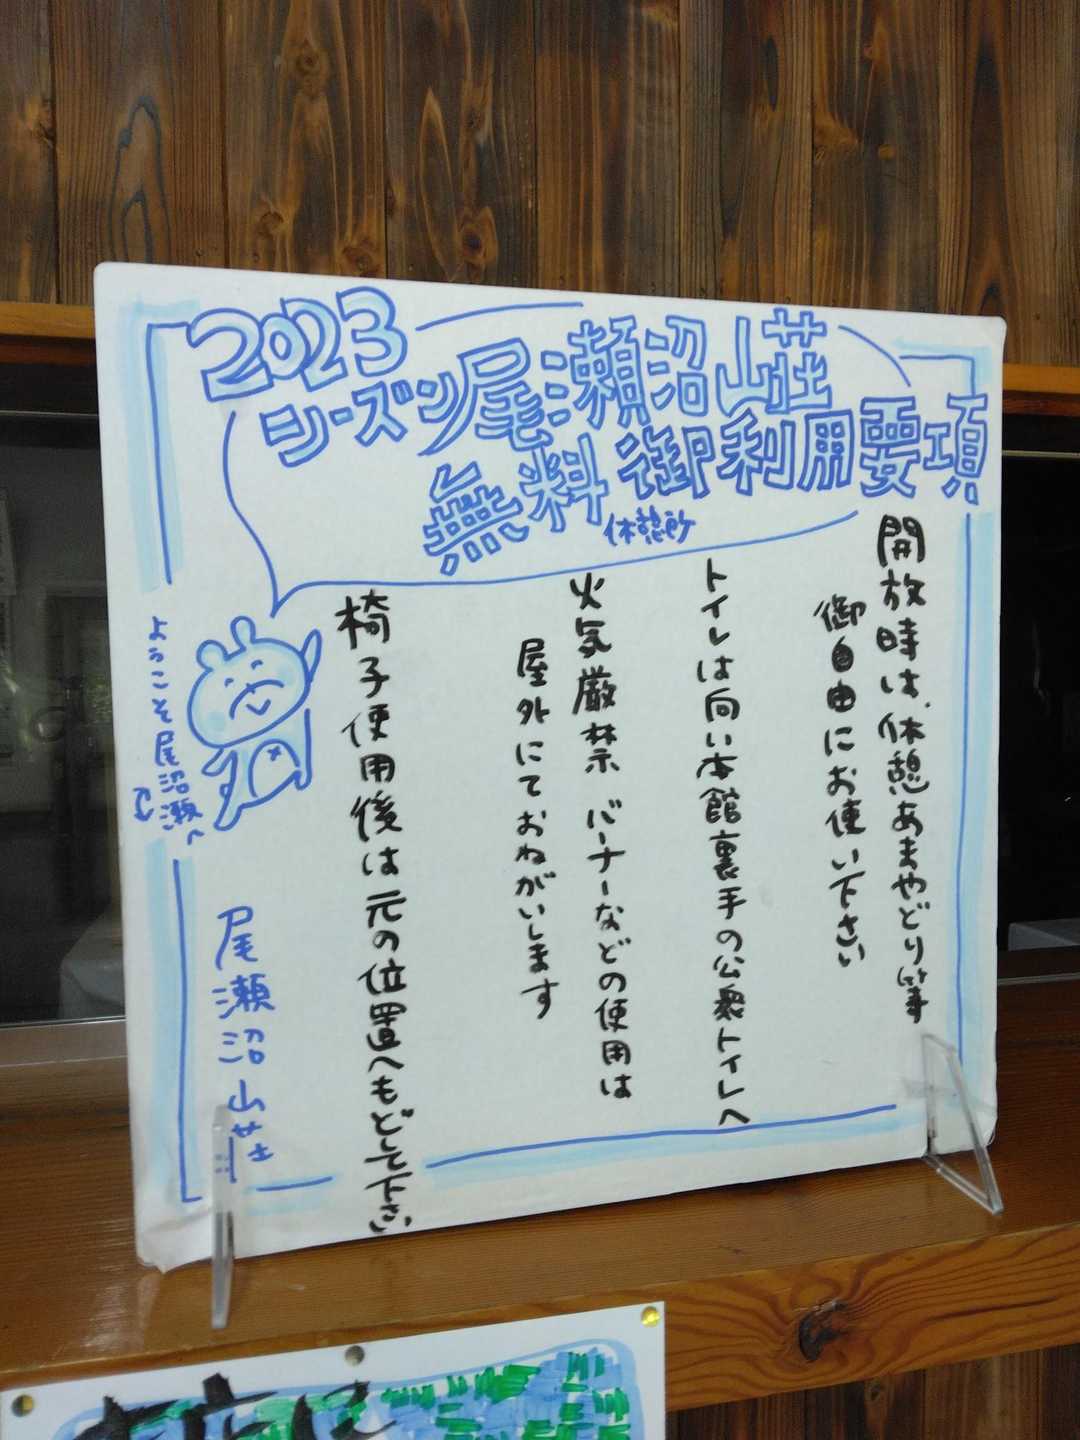 2023
シーズン尾瀬沼山荘
無料御利用要項
休憩所
開放時は、休憩あまやどり等
御自由にお使い下さい
トイレは向い本館裏手の公衆トイレへ
火気厳禁 バーナーなどの使用は
屋外にておねがいします
椅子使用後は元の位置へもどして下さい
ようこそ尾沼瀬へ
尾瀬沼山荘